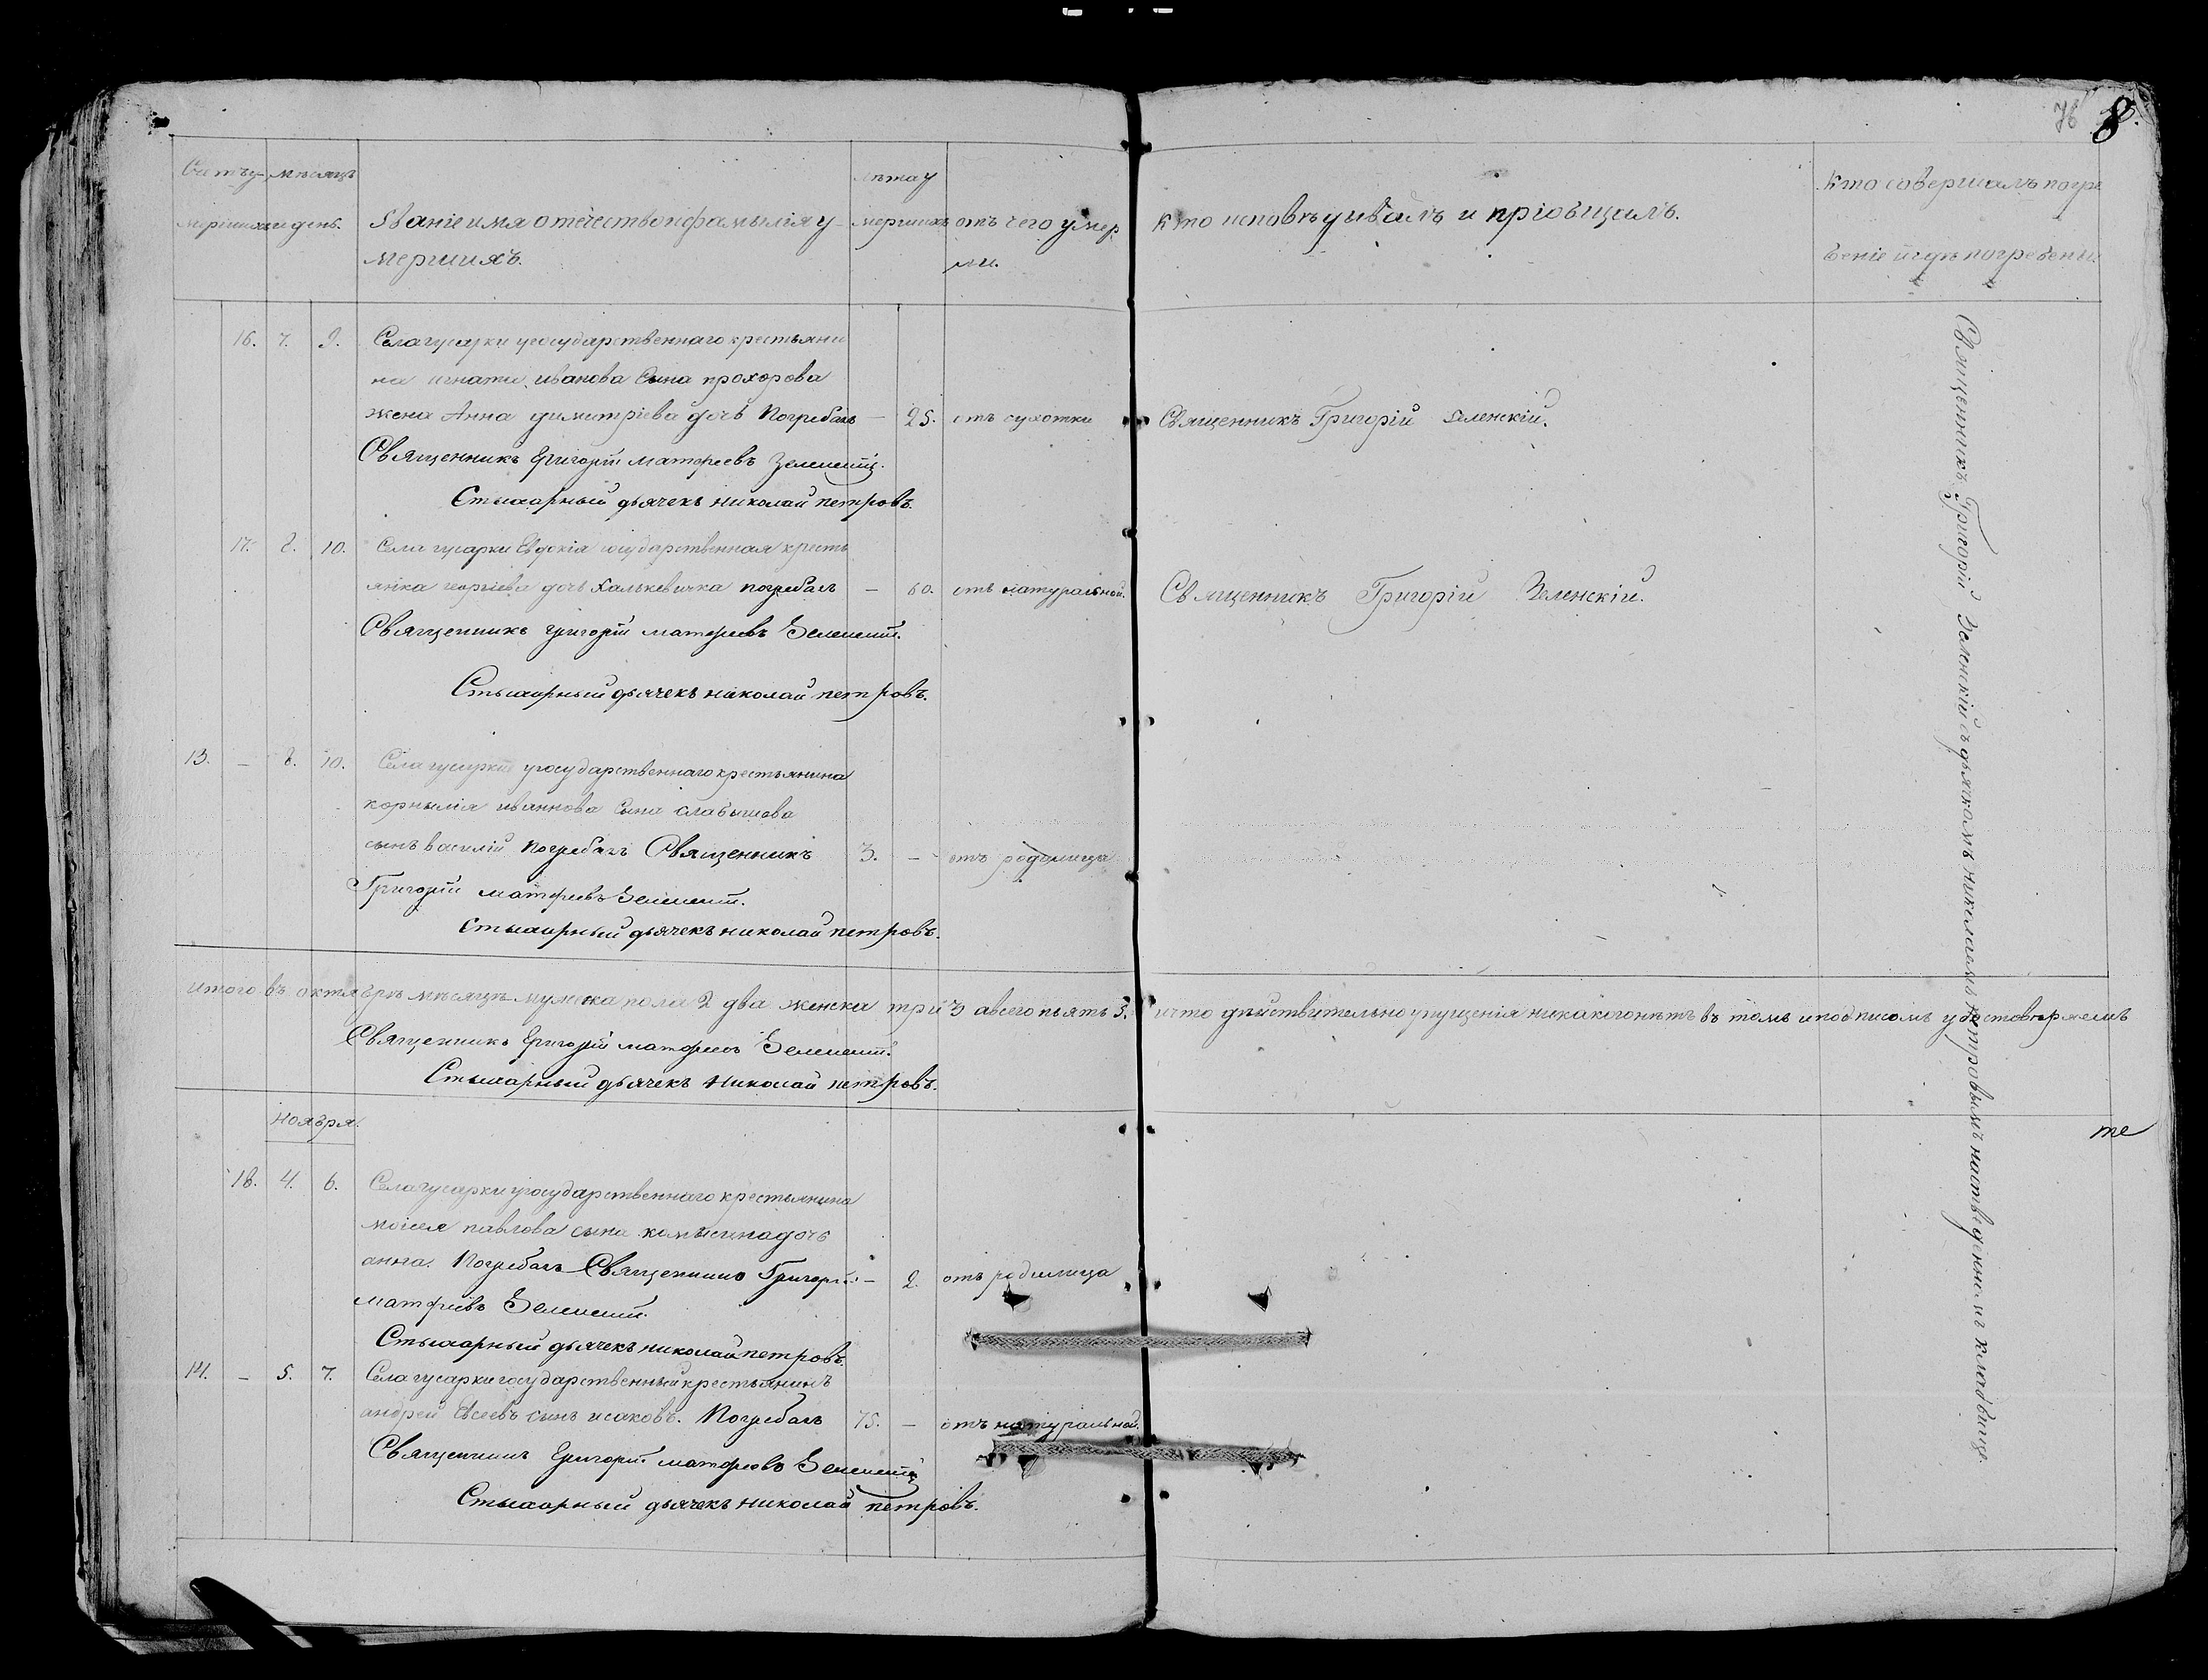 76 8.
Счетъ у- мѣсяцъ лѣта у кто совершалъ погре
мершихъ и день. Званіе имя отечество и фамылія у- мершихъ отъ чего умер кто исповѣдывалъ и пріобщилъ.
мершихъ. ли. беніе и гдѣ погребены.
16. 7. 9. Села гусарки у государственнаго крестьяни
на игнатія иванова сына прохорова
жена Анна димитріева дочь Погребалъ — 25. отъ сухотки Священникъ Григорій Зеленскій.
Священникъ Григорій Матфеевъ Зеленскій.
Стихарный дьячекъ николай петровъ.
17. 8. 10. Села гусарки Евдокія государственная кресть
янка георгіева дочь Халькевичка погребалъ — 60. отъ натуральной. Священникъ Григорій Зеленскій.
Священникъ григорій матфеевъ Зеленскій.
Стихарный дьячекъ николай петровъ.
13. — 8. 10. Села гусарки у государственнаго крестьянина
корнылія иваннова сына славышова
сынъ василій Погребалъ Священникъ 3. — отъ родимица
Григорій матфеевъ Зеленскій.
Стихарный дьячекъ николай петровъ.
итого въ октябрѣ мѣсяцѣ мужска пола 2 два женска три 3 а всего пьять 5. и что дѣйствительно упущенія никакого нѣтъ въ томъ и подписомъ удостовѣряемъ
Священникъ Григорій матфеевъ Зеленскій.
Стихарный дьячекъ Николай петровъ.
ноября.
те
18. 4. 6. Села гусарки у государственнаго крестьянина
моісея павлова сына комысина дочь
анна. Погребалъ Священникъ Григорій — 2. отъ родимица
матфеевъ Зеленскій.
Стихарный дьячекъ николай петровъ.
14. — 5. 7. Села гусарки государственный крестьянинъ
андрей Евсеевъ сынъ исаковъ. Погребалъ 75. — отъ натуральной.
Священникъ Григорій матфеевъ Зеленскій
Стихарный дьячекъ николай петровъ.
Священникъ Григорій Зеленскій съ дьячкомъ николаемъ петровымъ на отведенномъ кладбищѣ.